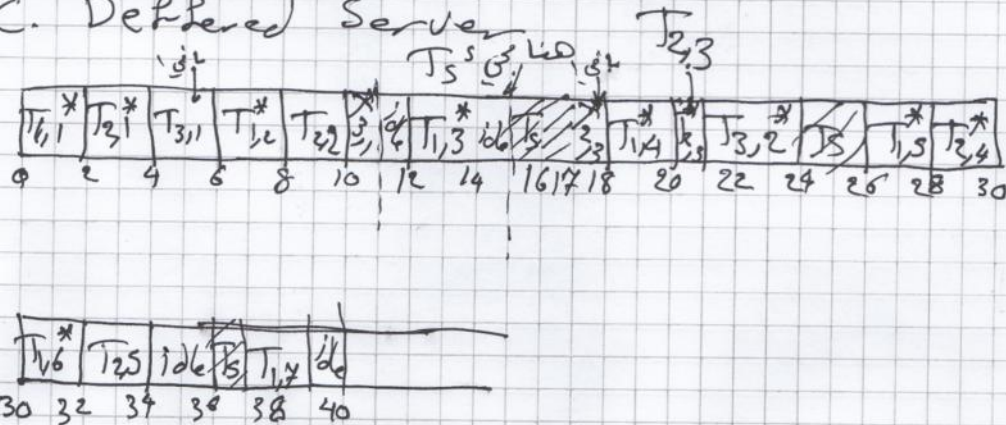 C. Deffered Server
T2,3
Ts
T1,1* T2,1* T3,1 T1,2* T2,2 id T1,3* id Ts T1,4* T3,2* Ts T1,5* T2,4*
0 2 4 6 8 10 12 14 16 17 18 20 22 24 26 28 30
T1,6* T2,5 idle Ts T1,7 idle
30 32 34 36 38 40